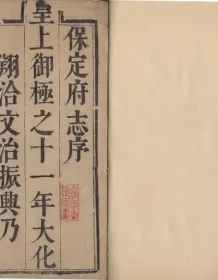 保定府志序
皇上御極之十一年大化
翔洽文治振興乃